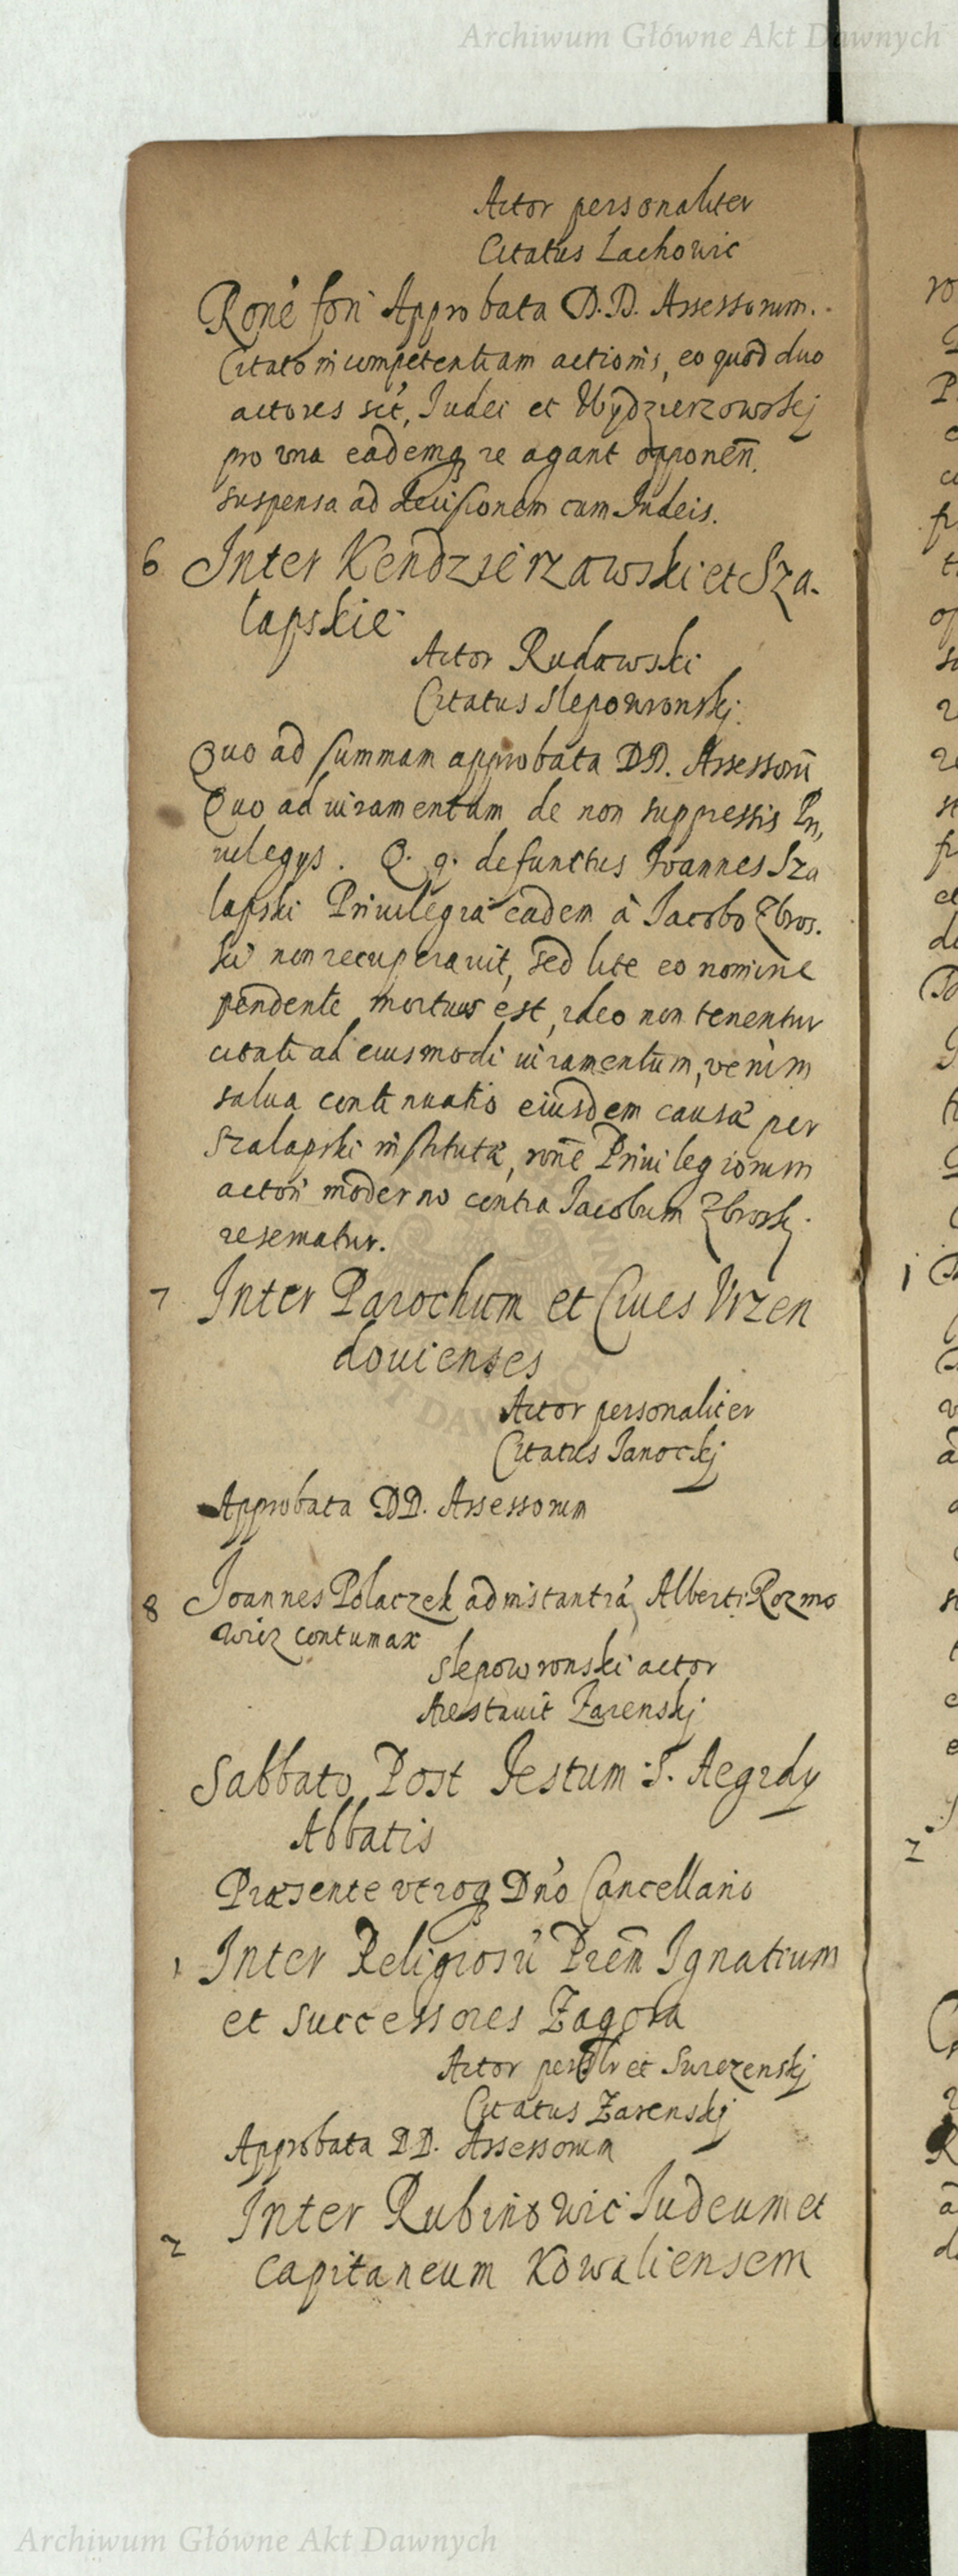 Archiwum Główne Akt Dawnych
Actor personaliter
Citatus Lachowic
Rone fori Approbata D.D. Assessorum.
Citato incompetentiam actionis, eo quod duo
actores sct, Iudei et Wydzierzowskj
pro vna eademq re agant opponen.
suspensa ad decisionem cum Iudeis.
6 Inter Kendzierzawski et Sza-
lapskie
Actor Rudawski
Citatus Slepowronskj.
Quo ad summam approbata DD. Assessorū
Quo ad iuramentum de non suppressis Pri,
uilegys. Q. q. defunctus Ioannes Sza
lapski Priuilegia eadem à Iacobo Zbros.
ski non recuperauit, sed lite eo nomine
pendente mortuus est, ideo non tenentur
citati ad eiusmodi iuramentum, verum
salua continuatio eiusdem causæ per
Szalapski institutæ, rone Priuilegiorum
actori moderno contra Iacobum Zbroskj.
reseruatur.
7 Inter Parochum et Ciues Vrzen
douienses
Actor personaliter
Citatus Ianockj
Approbata DD. Assessorum
8 Ioannes Polaczek ad instantiā Alberti Rozmo
wicz contumax
Slepowronski actor
Arestauit Zarenskj
Sabbato Post Festum S. Aegidy
Abbatis
Præsente vtroq Dno Cancellario
1 Inter Religiosū Prem Ignatium
et successores Zagora
Actor persolr et Surezenskj
Citatus Zarenskj
Approbata DD. Assessorum
2 Inter Rubinowic Iudeum et
Capitaneum Kowaliensem
Archiwum Główne Akt Dawnych